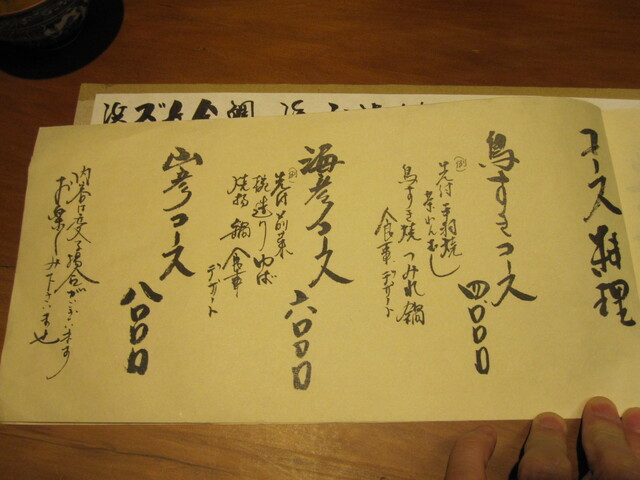 コース料理
鳥すきコース 四〇〇〇
(例)
先付 手羽焼
茶わんむし
鳥すき焼 つみれ鍋
食事 デザート
海彦コース 六〇〇〇
(例)
先付 前菜
椀 造り ゆば
焼物 鍋 食事
デザート
山彦コース 八〇〇〇
内容は変る場合がございます
お楽しみ下さいませ